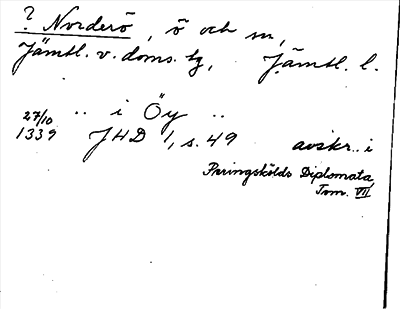 ? Norderö, ö och sn,
Jämtl. v. doms. tg, Jämtl. l.
27/10 1339 .. i Öy ..
JHD 1, s. 49 avskr. i
Peringskölds Diplomata,
Tom. VII